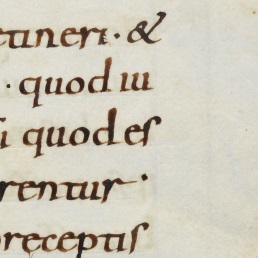 etineri · &
· quod iu
si quod es
rentur ·
preceptis